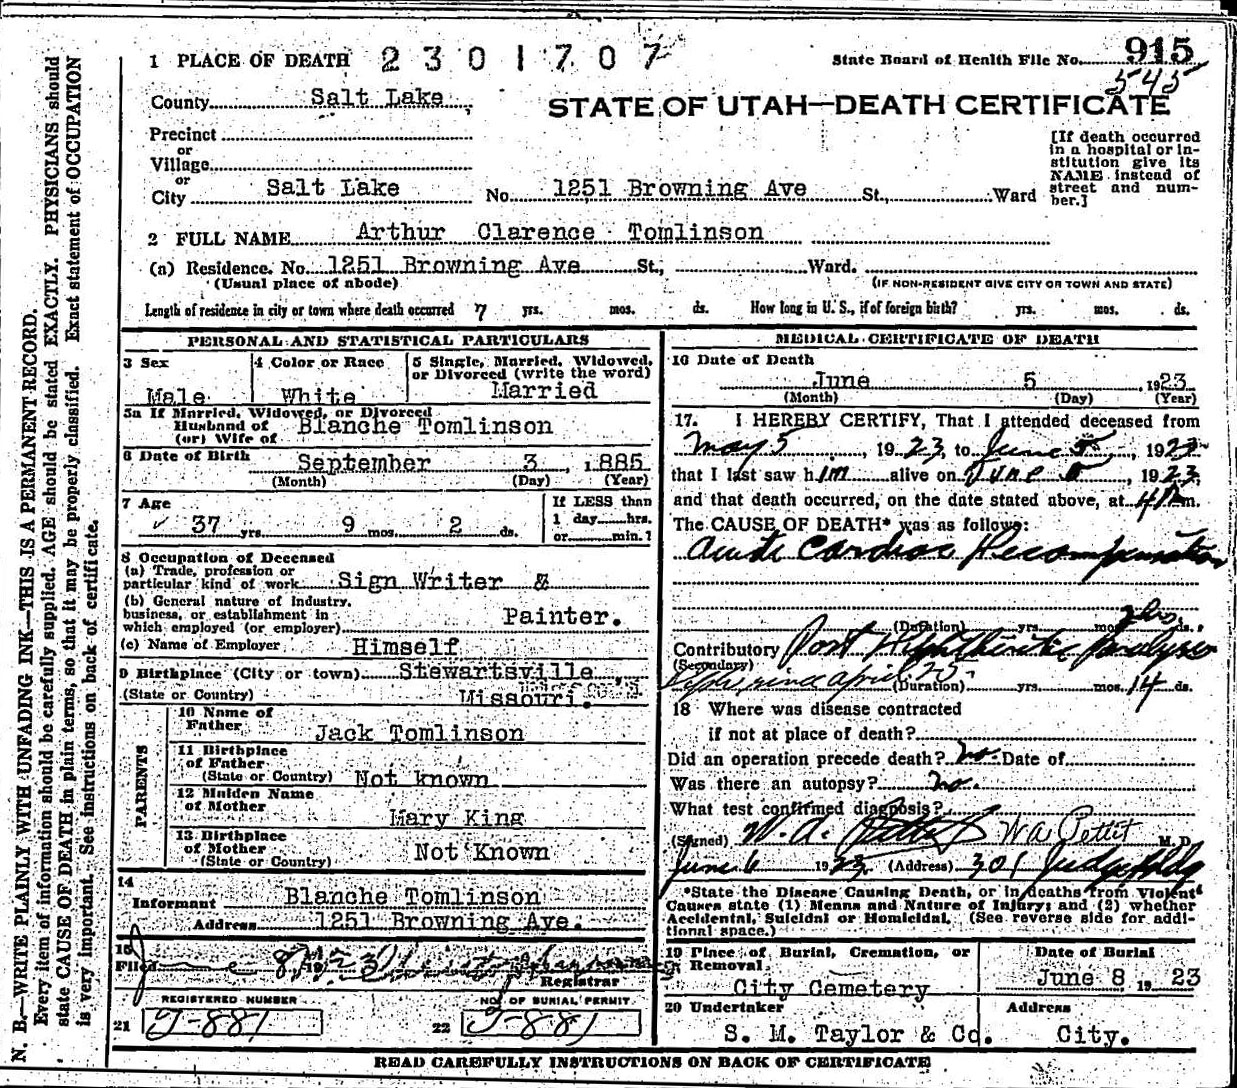 1 PLACE OF DEATH 2301707 State Board of Health File No. 915
545
County Salt Lake STATE OF UTAH—DEATH CERTIFICATE
Precinct
or
Village
or
City Salt Lake No. 1251 Browning Ave St., Ward
[If death occurred
in a hospital or in-
stitution give its
NAME instead of
street and num-
ber.]
2 FULL NAME Arthur Clarence Tomlinson
(a) Residence. No. 1251 Browning Ave St., Ward.
(Usual place of abode) (IF NON-RESIDENT GIVE CITY OR TOWN AND STATE)
Length of residence in city or town where death occurred 7 yrs. mos. ds. How long in U. S., if of foreign birth? yrs. mos. ds.
PERSONAL AND STATISTICAL PARTICULARS
3 Sex
Male
4 Color or Race
White
5 Single, Married, Widowed,
or Divorced (write the word)
Married
5a If Married, Widowed, or Divorced
Husband of
(or) Wife of Blanche Tomlinson
6 Date of Birth September 3, 1885
(Month) (Day) (Year)
7 Age
37 yrs. 9 mos. 2 ds.
If LESS than
1 day hrs.
or min.?
8 Occupation of Deceased
(a) Trade, profession or
particular kind of work Sign Writer &
(b) General nature of industry,
business, or establishment in
which employed (or employer) Painter.
(c) Name of Employer Himself
9 Birthplace (City or town) Stewartsville,
(State or Country) Missouri.
PARENTS
10 Name of
Father Jack Tomlinson
11 Birthplace
of Father
(State or Country) Not known
12 Maiden Name
of Mother Mary King
13 Birthplace
of Mother
(State or Country) Not Known
14
Informant Blanche Tomlinson
Address 1251 Browning Ave.
15
Filed June 8, 1923
Registrar
REGISTERED NUMBER NO. OF BURIAL PERMIT
21 J-881 22 J-881
MEDICAL CERTIFICATE OF DEATH
16 Date of Death
June 5, 1923
(Month) (Day) (Year)
17. I HEREBY CERTIFY, That I attended deceased from
May 5, 1923, to June 5, 1923
that I last saw him alive on June 5, 1923,
and that death occurred, on the date stated above, at 4 m.
The CAUSE OF DEATH* was as follows:
Acute Cardiac Decompensation
(Duration) yrs. mos. ds.
Contributory Post Diphtheritic Paralysis
(Secondary)
since April 25 (Duration) yrs. mos. 14 ds.
18 Where was disease contracted
if not at place of death?
Did an operation precede death? no Date of
Was there an autopsy? no.
What test confirmed diagnosis?
(Signed) W. A. Pettit W A Pettit M. D.
June 6 1923. (Address) 301 Judge Bldg
*State the Disease Causing Death, or in deaths from Violent
Causes state (1) Means and Nature of Injury; and (2) whether
Accidental, Suicidal or Homicidal. (See reverse side for addi-
tional space.)
19 Place of Burial, Cremation, or
Removal.
City Cemetery
Date of Burial
June 8 1923
20 Undertaker
S. M. Taylor & Co.
Address
City.
READ CAREFULLY INSTRUCTIONS ON BACK OF CERTIFICATE
N. B.—WRITE PLAINLY WITH UNFADING INK—THIS IS A PERMANENT RECORD.
Every item of information should be carefully supplied. AGE should be stated EXACTLY. PHYSICIANS should
state CAUSE OF DEATH in plain terms, so that it may be properly classified. Exact statement of OCCUPATION
is very important. See instructions on back of certificate.